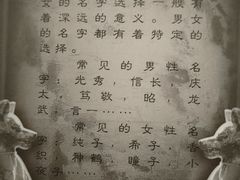 的名字选择一般有
着深远的意义。男女
的名字都有着特定的
选择。
常见的男性名
字：光秀，信长，庆
太 笃敬，昭龙
武，言一……
常见的女性名
字：纯子，希子，香
织，神鹤，瞳子，小
夜子……